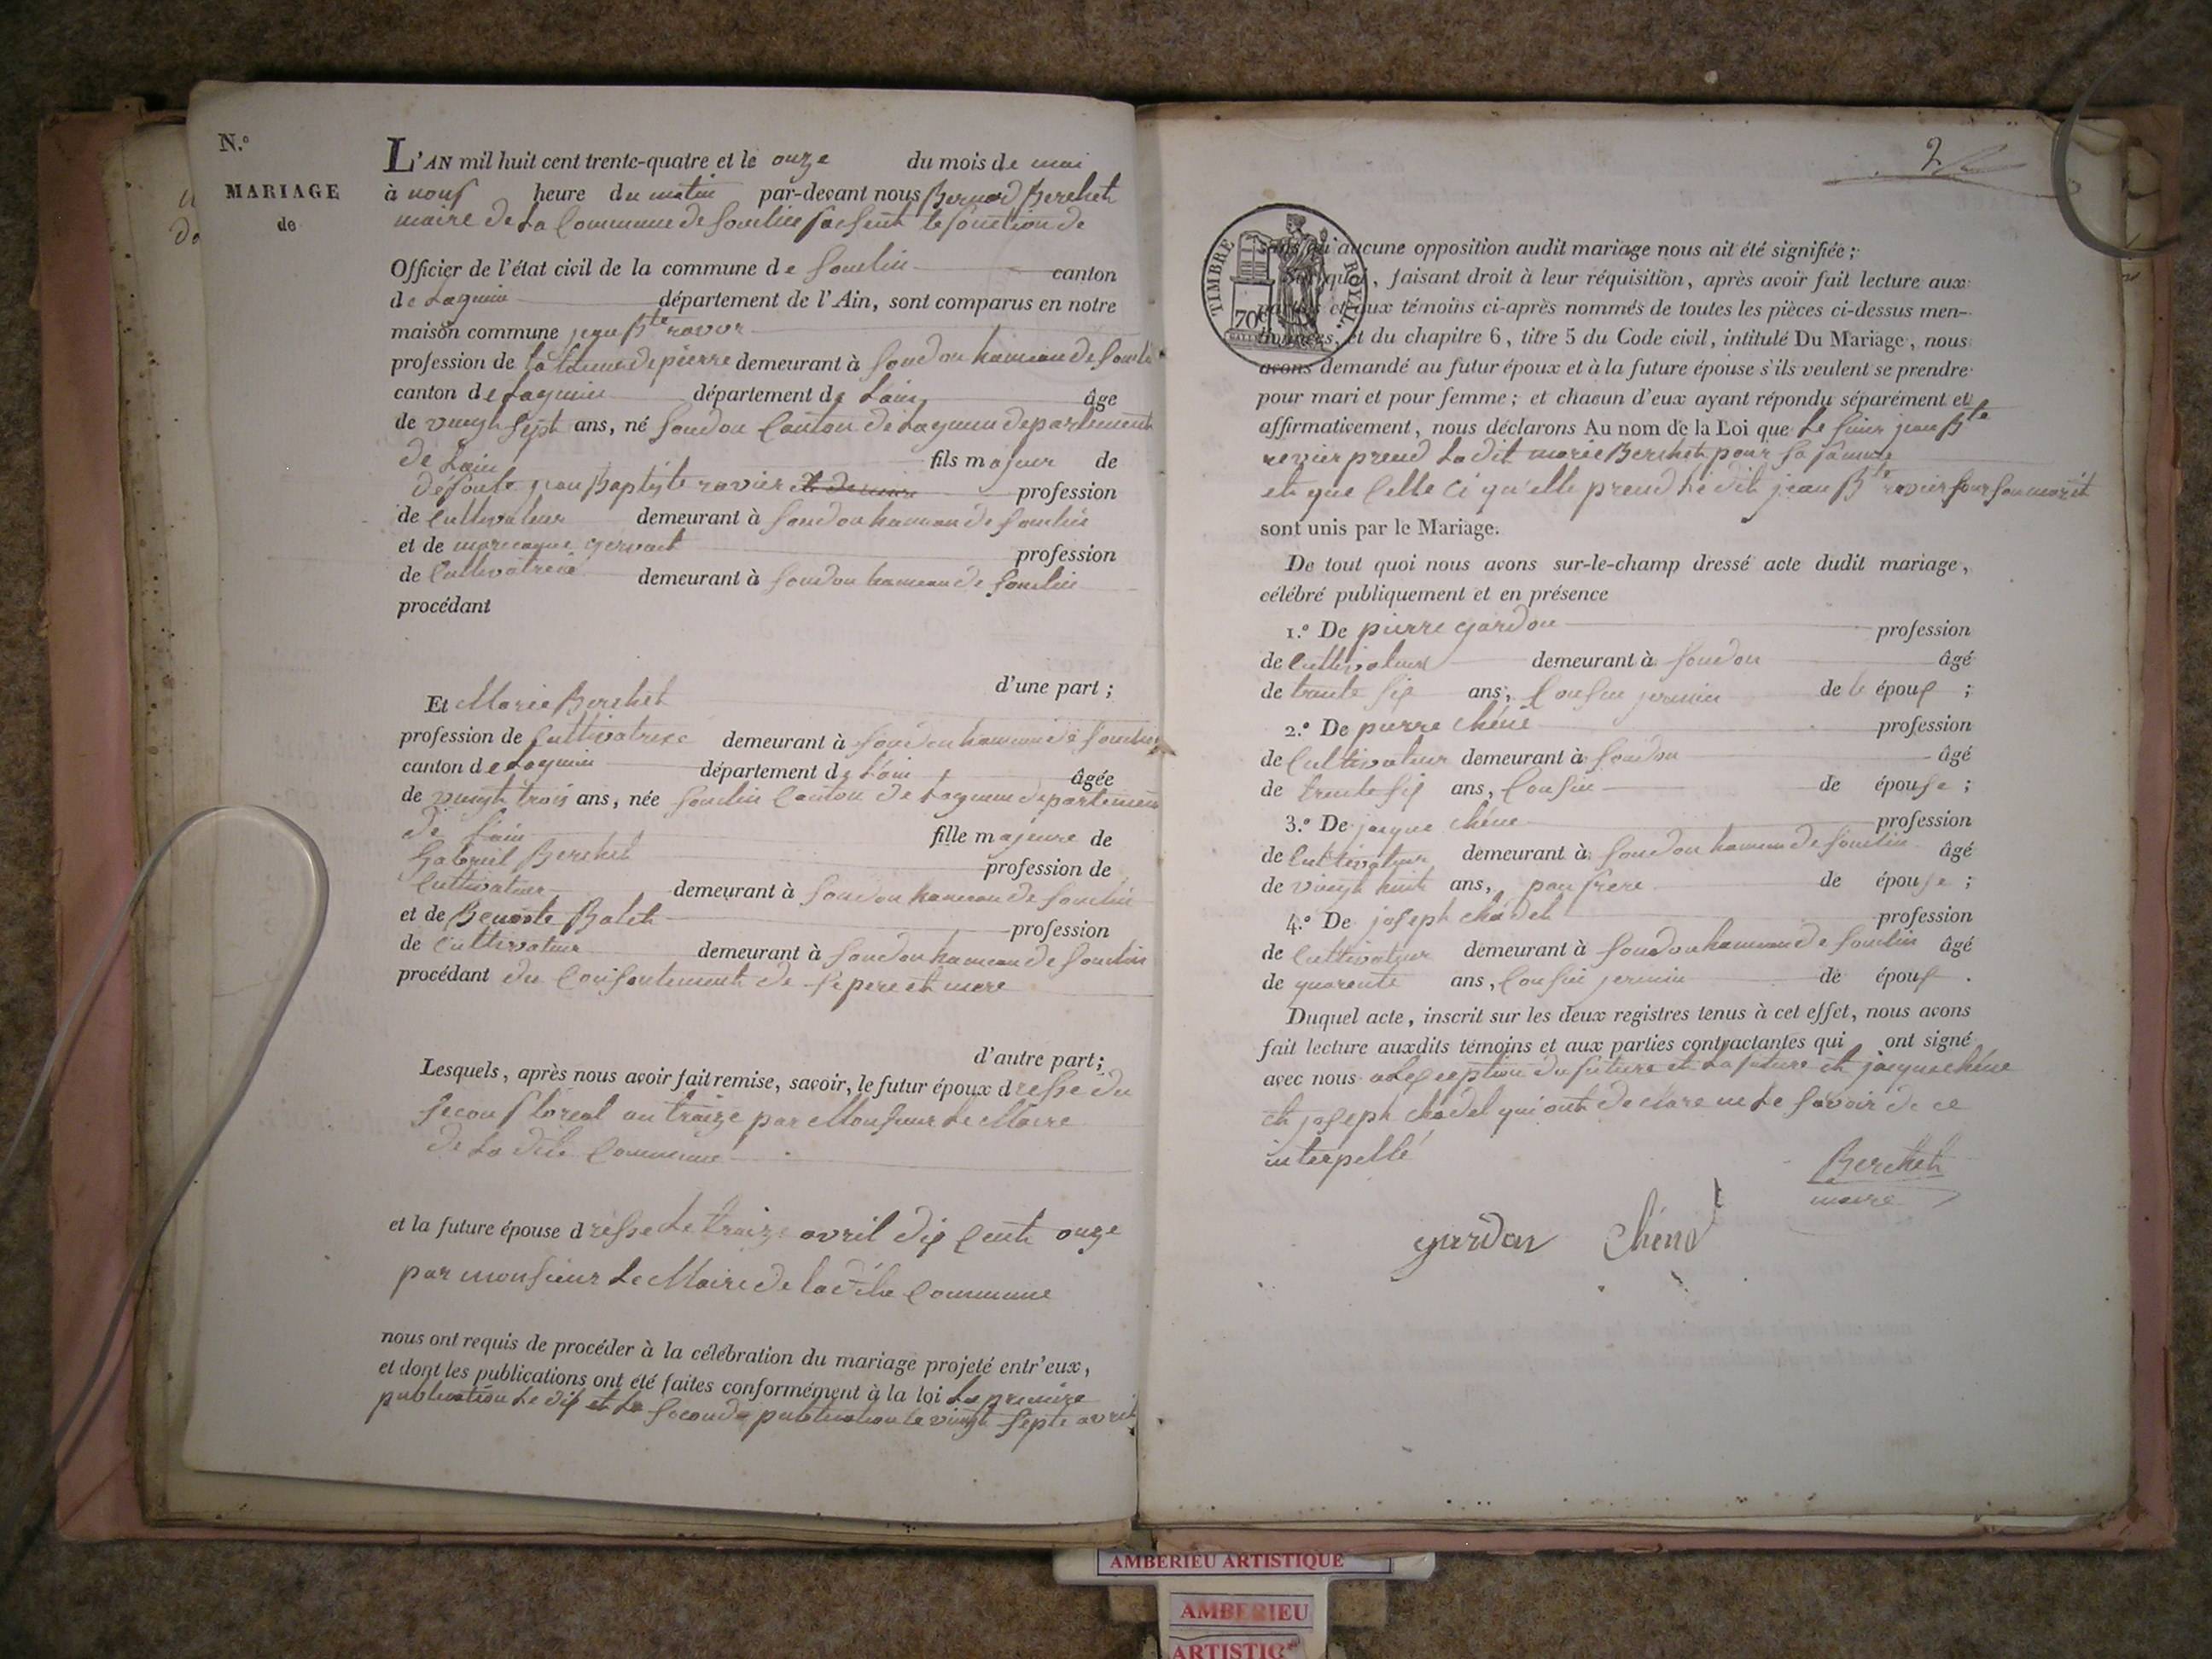 N.o
MARIAGE
de
L'AN mil huit cent trente-quatre et le onze du mois de mai
à nouf heure du matin par-devant nous Bernard Berchet
maire de La Commune de Souclin faesent le fonction de
Officier de l'état civil de la commune de Souclin canton
de Lagnieu département de l'Ain, sont comparus en notre
maison commune jean Bte ravier
profession de talleur de pierre demeurant à Soudon hameau de Souclin
canton de Lagnieu département de Lain âge
de vingt sept ans, né Soudon Canton de Lagnieu departement
de Lain fils majeur de
defunte jean Baptiste ravier profession
de Cultivateur demeurant à Soudon hameau de Souclin
et de gervait profession
de Cultivatrice demeurant à Soudon hameau de Souclin
procédant
d'une part ;
Et Marie Berchet
profession de Cultivatrice demeurant à Soudon hameau de Souclin
canton de Lagnieu département de Lain âgée
de vingt trois ans, née Souclin Canton de Lagnieu departement
de Lain fille majeure de
Gabriel Berchet profession de
Cultivateur demeurant à Soudon hameau de Souclin
et de Benoite Balet profession
de Cultivateur demeurant à Soudon hameau de Souclin
procédant du Consontement de se pere et mere
d'autre part;
Lesquels, après nous avoir fait remise, savoir, le futur époux dresse du
secon floreal an traize par Monsieur Le Maire
de La dite Commune
et la future épouse dresse Le traize avril dix Cent onze
par monsieur Le Maire de la dite Commune
nous ont requis de procéder à la célébration du mariage projeté entr'eux,
et dont les publications ont été faites conformément à la loi La premire
publication Le dix et La seconde publication le vingt septe avril
2
TIMBRE ROYAL
70c
sans qu'aucune opposition audit mariage nous ait été signifiée ;
Sur quoi, faisant droit à leur réquisition, après avoir fait lecture aux
parties et aux témoins ci-après nommés de toutes les pièces ci-dessus men-
tionnées, et du chapitre 6, titre 5 du Code civil, intitulé Du Mariage, nous
avons demandé au futur époux et à la future épouse s'ils veulent se prendre
pour mari et pour femme ; et chacun d'eux ayant répondu séparément et
affirmativement, nous déclarons Au nom de la Loi que Le sieur jean Bte
revier prend La dit marie Berchet pour sa famme
et que Celle ci qu'elle prend Le dit jean Bte ravier pour son marit
sont unis par le Mariage.
De tout quoi nous avons sur-le-champ dressé acte dudit mariage,
célébré publiquement et en présence
1.o De pierre gardon profession
de Cultivateur demeurant à Soudon âgé
de trante six ans, Cousin jermin de le époux ;
2.o De pierre Chéne profession
de Cultivateur demeurant à Soudon âgé
de trente six ans, Cousin de épouse ;
3.o De jacque Chéne profession
de Cultivateur demeurant à Soudon hameau de Souclin âgé
de vingt huit ans, pau frere de épouse ;
4.o De joseph Chadel profession
de Cultivateur demeurant à Soudon hameau de Souclin âgé
de quarente ans, Cousin jermin de époux .
Duquel acte, inscrit sur les deux registres tenus à cet effet, nous avons
fait lecture auxdits témoins et aux parties contractantes qui ont signé
avec nous a Lexception du future et La future et jacque Chéne
et joseph Chadel qui ont declare ne Le savoir de ce
interpellé
Berchet
maire
gardon Chéne
AMBERIEU ARTISTIQUE
AMBERIEU
ARTISTIQ